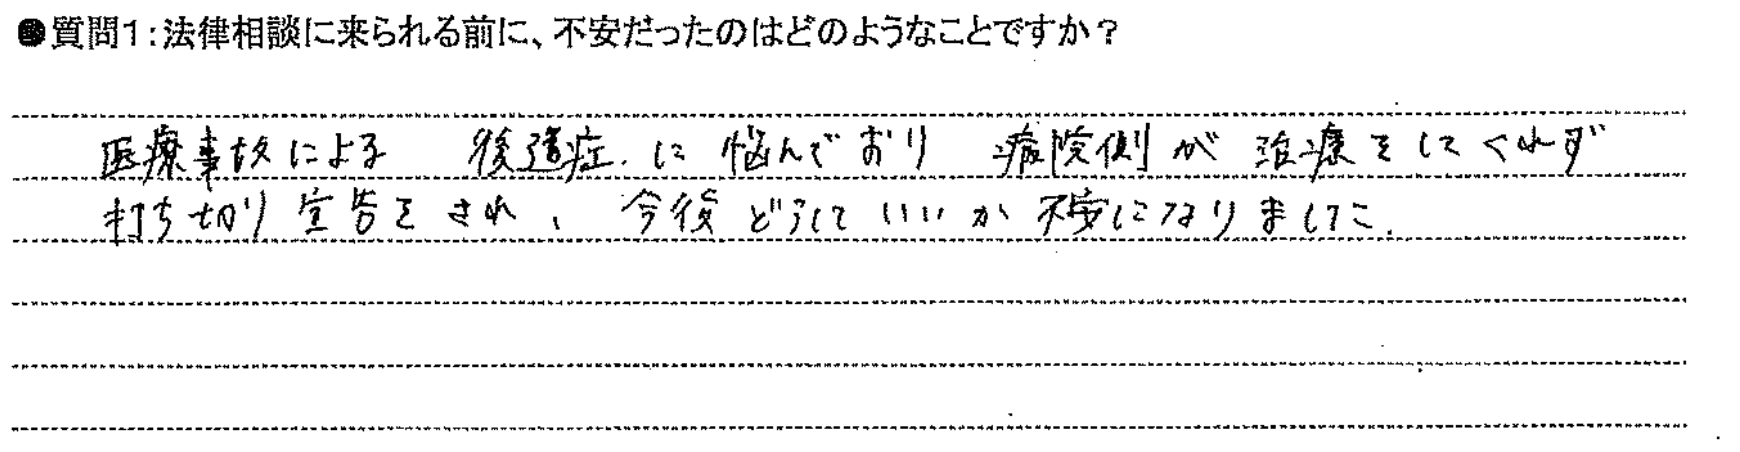 ●質問1:法律相談に来られる前に、不安だったのはどのようなことですか?
医療事故による 後遺症に悩んでおり 病院側が治療をしてくれず
打ち切り宣告をされ、今後どうしていいか不安になりました.